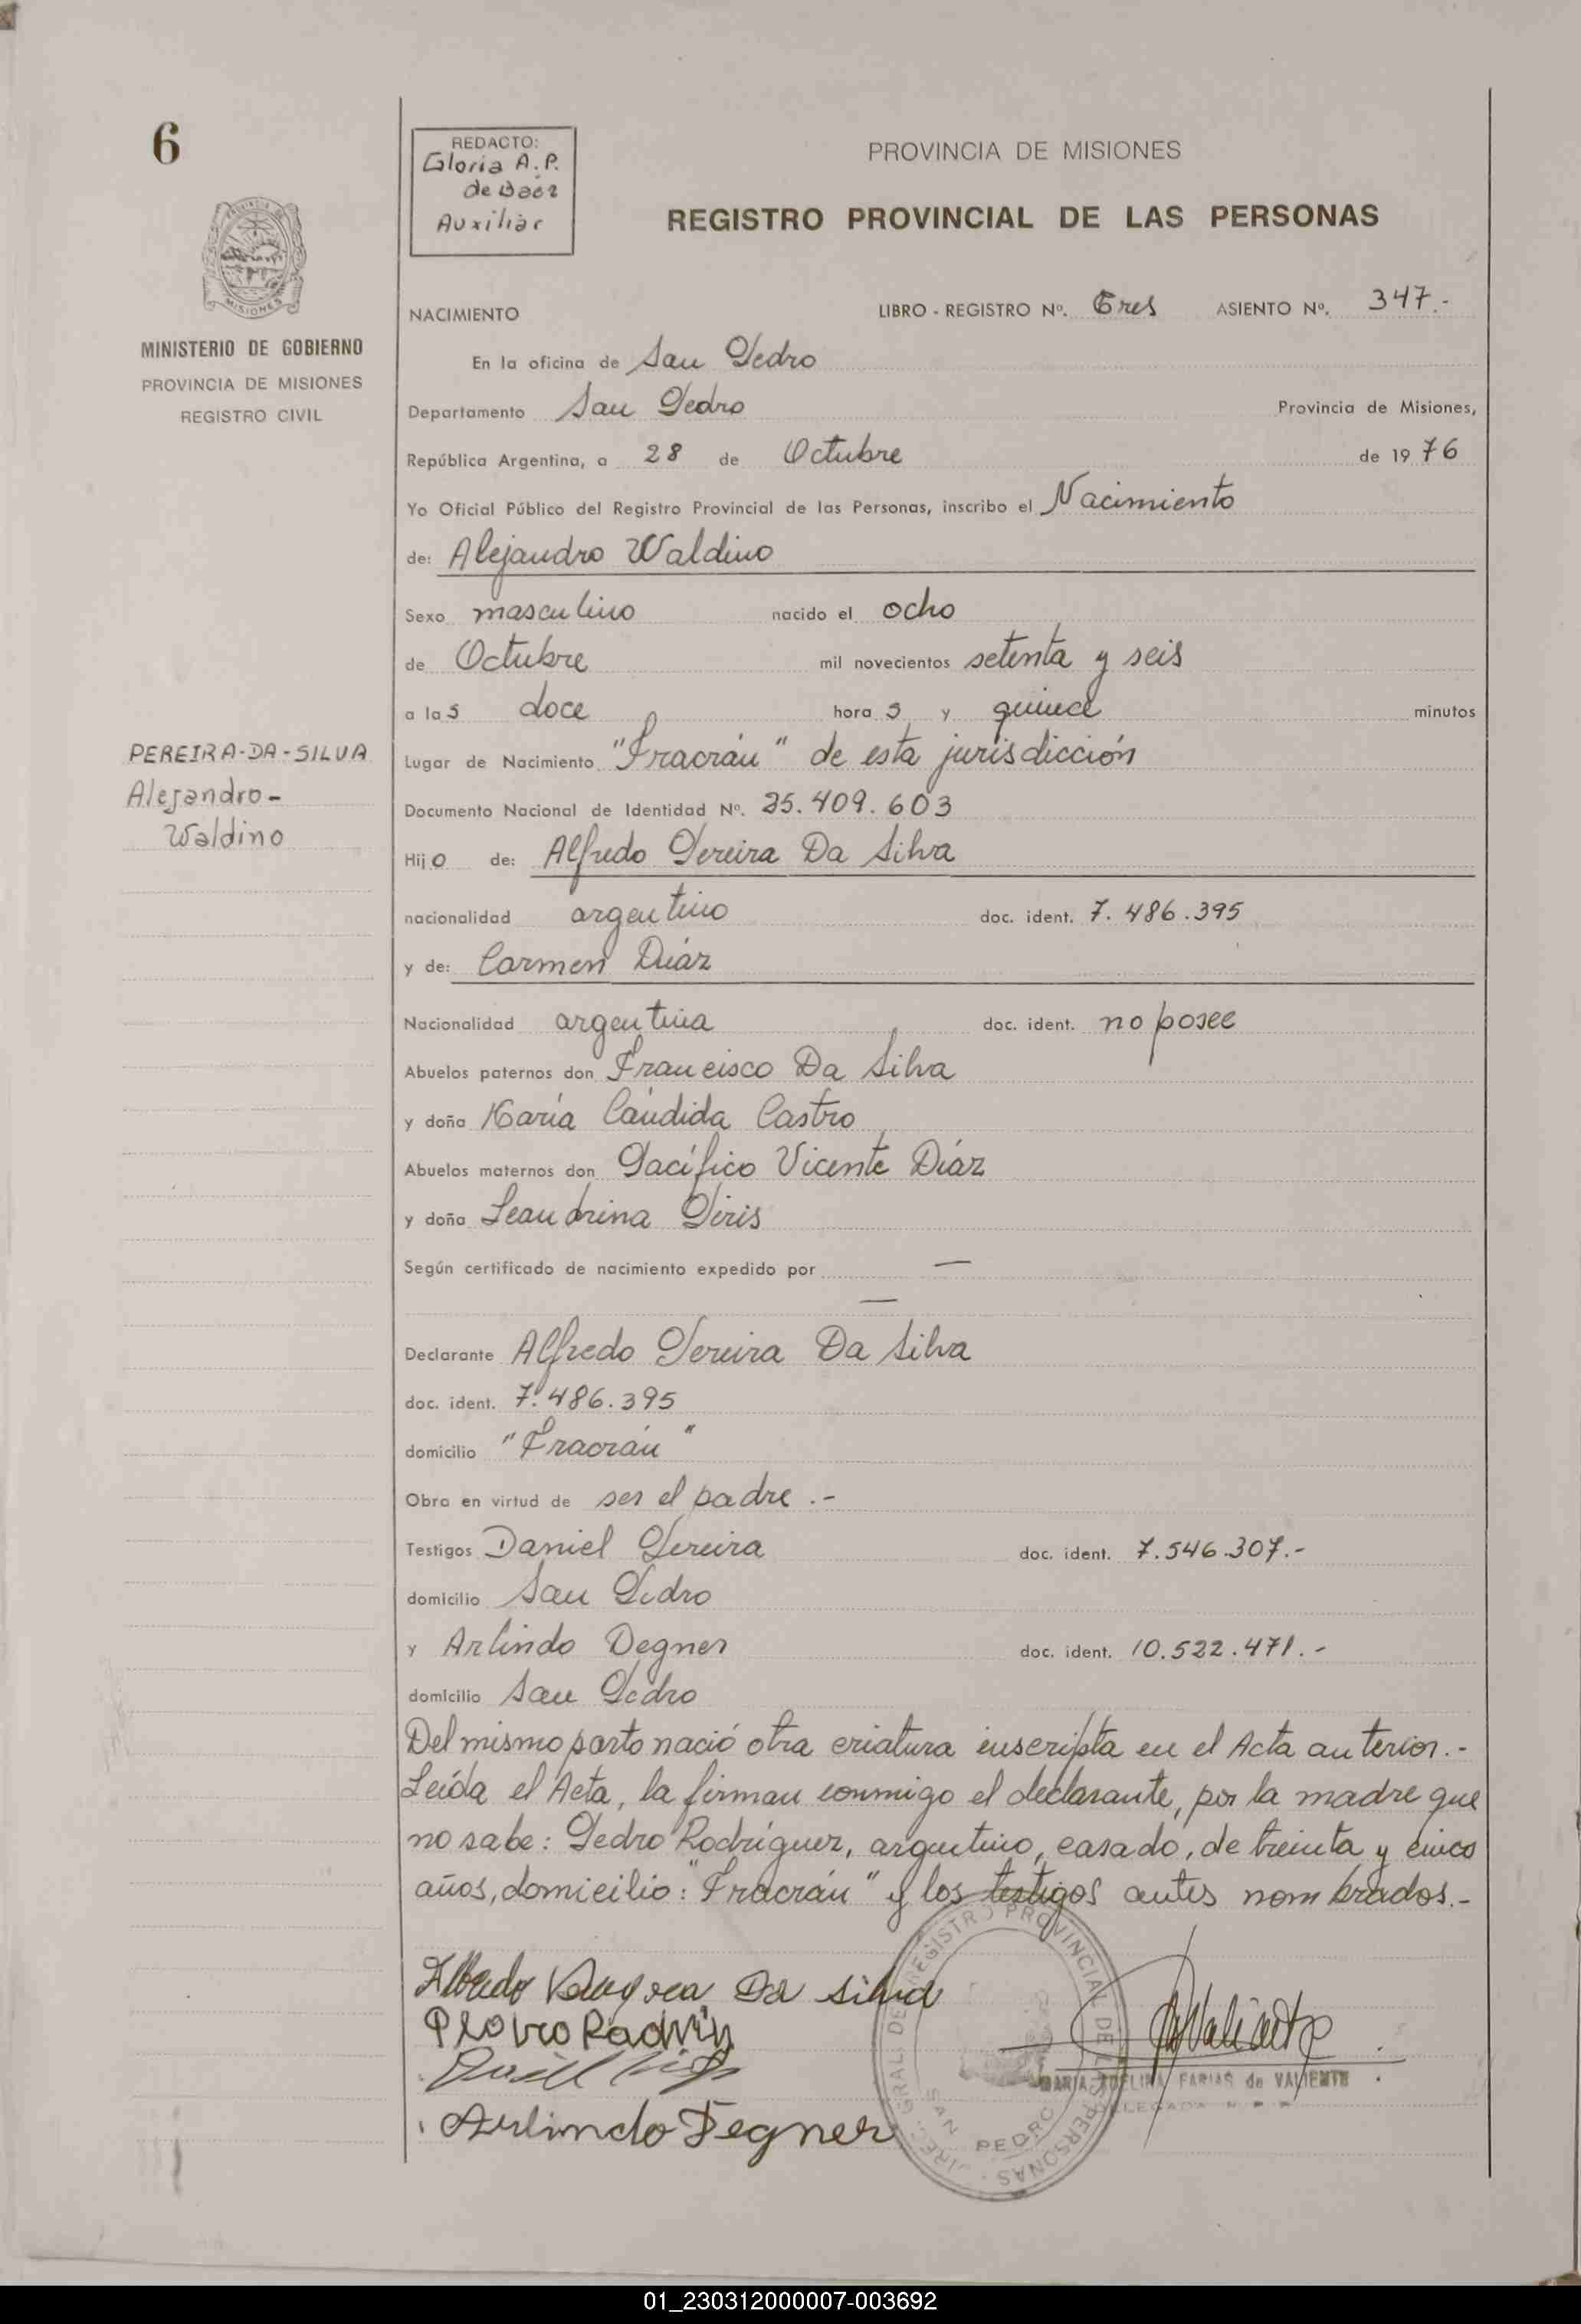 6
REDACTO:
Gloria A. P.
de Baez
Auxiliar
PROVINCIA DE MISIONES
REGISTRO PROVINCIAL DE LAS PERSONAS
MINISTERIO DE GOBIERNO
PROVINCIA DE MISIONES
REGISTRO CIVIL
NACIMIENTO LIBRO - REGISTRO Nº. Tres ASIENTO Nº. 347.-
En la oficina de San Pedro
Departamento San Pedro Provincia de Misiones,
República Argentina, a 28 de Octubre de 1976
Yo Oficial Público del Registro Provincial de las Personas, inscribo el Nacimiento
de: Alejandro Waldino
Sexo masculino nacido el ocho
de Octubre mil novecientos setenta y seis
a las doce horas y quince minutos
PEREIRA-DA-SILVA
Alejandro-
Waldino
Lugar de Nacimiento "Fracrán" de esta jurisdicción
Documento Nacional de Identidad Nº. 25.409.603
Hijo de: Alfredo Pereira Da Silva
nacionalidad argentino doc. ident. 7.486.395
y de: Carmen Díaz
Nacionalidad argentina doc. ident. no posee
Abuelos paternos don Francisco Da Silva
y doña María Cándida Castro
Abuelos maternos don Pacífico Vicente Díaz
y doña Leandrina Piris
Según certificado de nacimiento expedido por —
—
Declarante Alfredo Pereira Da Silva
doc. ident. 7.486.395
domicilio "Fracrán"
Obra en virtud de ser el padre.-
Testigos Daniel Pereira doc. ident. 7.546.307.-
domicilio San Pedro
y Arlindo Degner doc. ident. 10.522.471.-
domicilio San Pedro
Del mismo parto nació otra criatura inscripta en el Acta anterior.-
Leída el Acta, la firman conmigo el declarante, por la madre que
no sabe: Pedro Rodríguez, argentino, casado, de treinta y cinco
años, domicilio: "Fracrán" y los testigos antes nombrados.-
Da silva
Arlindo Degner
MARIA ADELINA FARIAS de VALIENTE
DELEGADA
REGISTRO PROVINCIAL DE LAS PERSONAS
SAN PEDRO
01_230312000007-003692